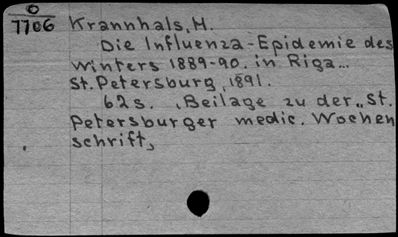 O
7706
Krannhals, H.
Die Influenza-Epidemie des
Winters 1889-90. in Riga...
St. Petersburg, 1891.
62 s. (Beilage zu der „St.
Petersburger medic. Wochen
schrift„